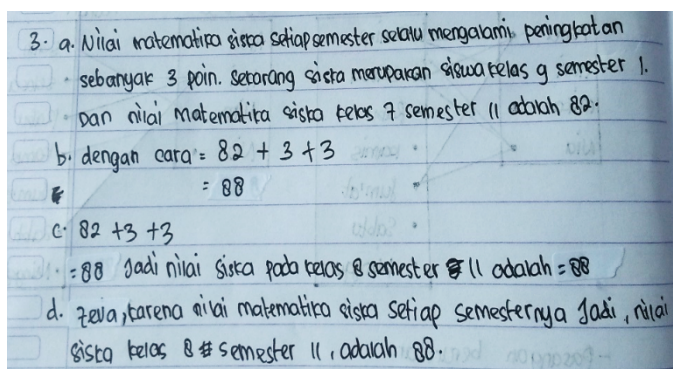 3. a. Nilai matematika siska setiap semester selalu mengalami peningkatan
sebanyak 3 poin. Sekarang siska merupakan siswa kelas 9 semester 1.
Dan nilai matematika siska kelas 7 semester 11 adalah 82.
b. dengan cara = 82 + 3 + 3
= 88
c. 82 + 3 + 3
= 88 Jadi nilai siska pada kelas 8 semester 11 adalah = 88
d. karena nilai matematika siska setiap semesternya Jadi, nilai
siska kelas 8 semester 11, adalah 88.